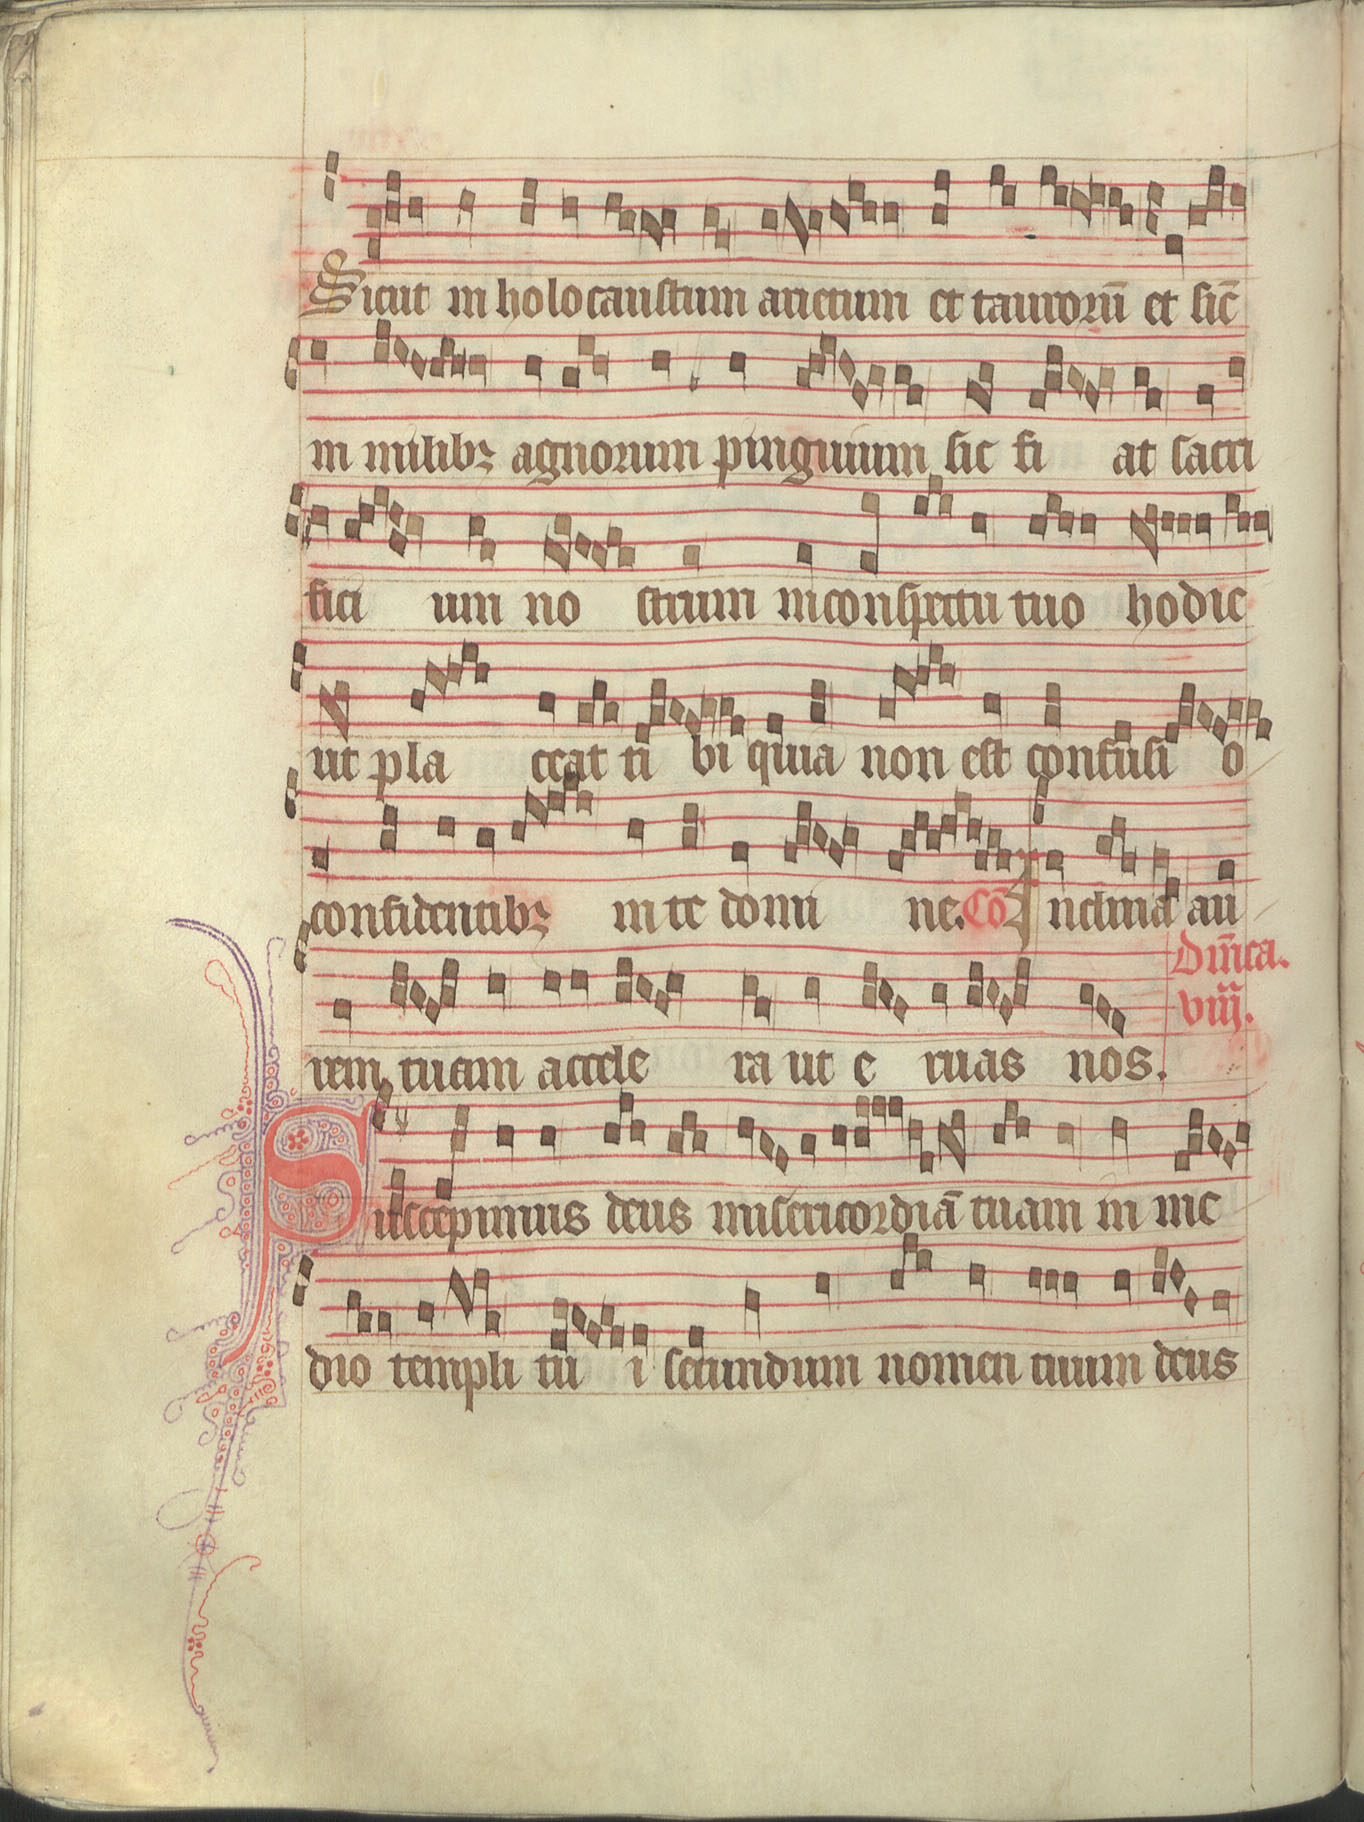 Sicut in holocaustum arietum et taurorū et sic̄
in milibꝫ agnorum pinguium sic fi at sacri
fici um no strum in conspectu tuo hodie
ut pla ceat ti bi quia non est confusi o
confidentibꝫ in te domi ne. Cō Inclina au
rem tuam accele ra ut e ruas nos. Dn̄ica. viij.
Suscepimus deus misericordiā tuam in me
dio templi tu i secundum nomen tuum deus